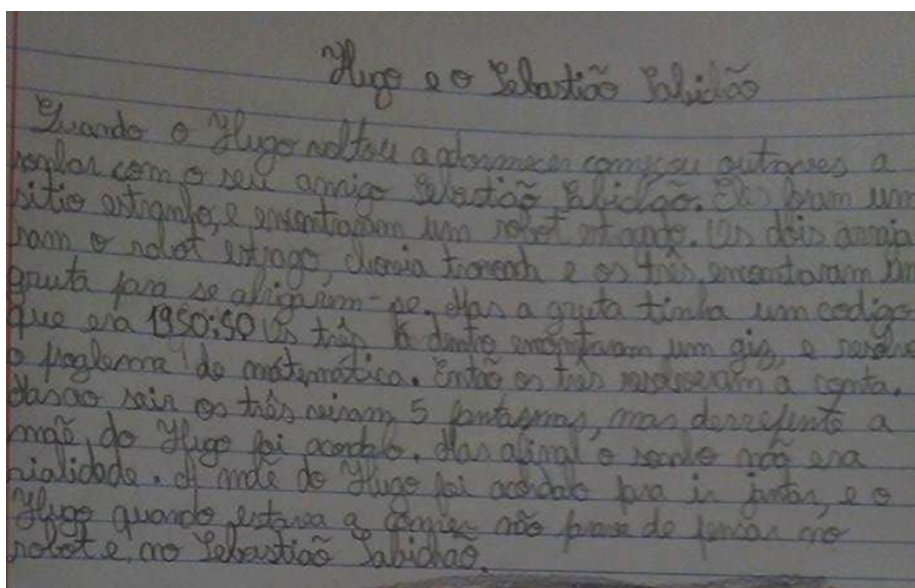 Hugo e o Sebastião Sabidão
Quando o Hugo voltou a adormecer começou outravês a
sonhar com o seu amigo Sebastião Sabidão. Eles foram um
sitio estranho, e encontraram um robot estragado. Os dois arranja
ram o robot estrago, chovia tronovada e os três encontaram um
gruta para se abrigarem-se. Mas a gruta tinha um codigo
que era 1950:50 Os três lá dentro encontraram um giz, e resolve
o proglema de mátematica. Então os três resolveram a conta.
Mas ao sair os três viram 5 fantasmas, mas derrefente a
mãe do Hugo foi acordalo. Mas afinal o sonho não era
rialidade. A mãe do Hugo foi acordalo para ir jantar, e o
Hugo quando estava a comer não parou de pensar no
robot e no Sebastião Sabichão.